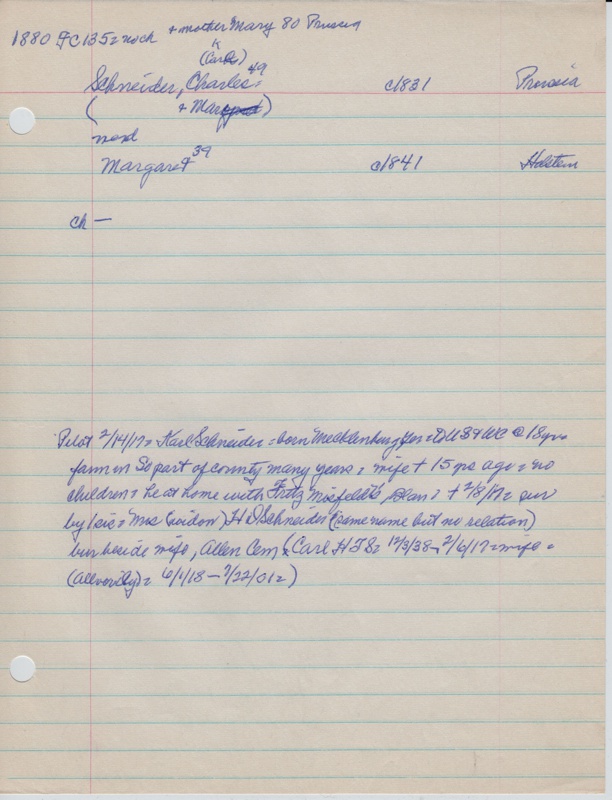 1880 FC 135= no ch + mother Mary 80 Prussia
K
(Carl)
Schneider, Charles= 49 c1831 Prussia
( + Mar
Margaret 39 c1841 Holstein
ch —
Pilot 2/14/17= Karl Schneider= born Mecklenburg Ger= US + WC @ 18 yrs
farm in So part of county many years= wife + 15 yrs ago= no
children= he at home with Fritz + 2/8/17= sur
by 1 sis= Mrs (widow) H D Schneider (same name but no relation)
bur beside wife, Allen Cem (Carl H F S= 12/3/38- 2/6/17= wife=
6/1/18 - 7/22/01=)